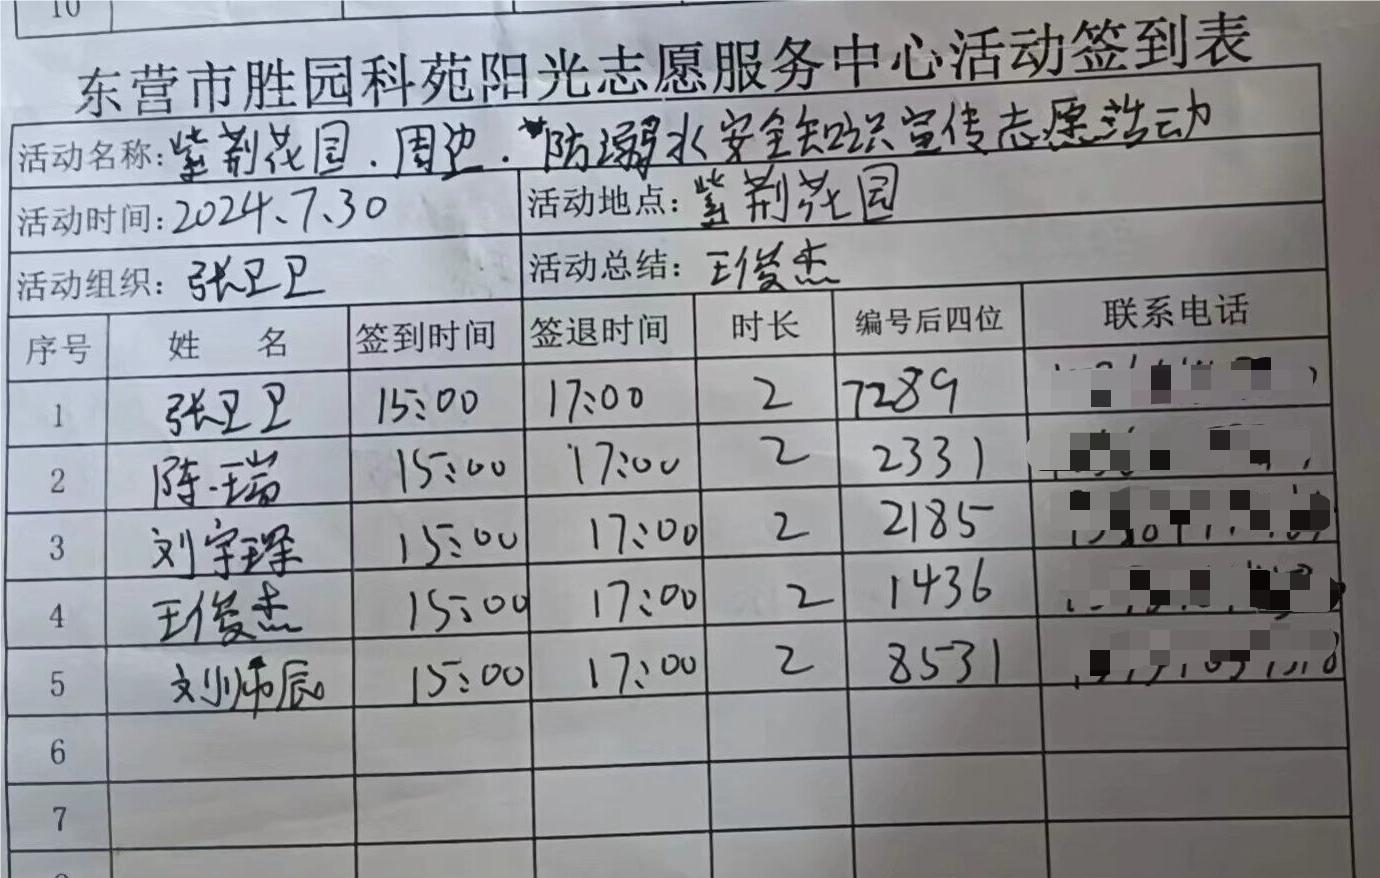 10
东营市胜园科苑阳光志愿服务中心活动签到表
活动名称: 紫荆花园.周边.防溺水安全知识宣传志愿活动
活动时间: 2024、7、30 活动地点: 紫荆花园
活动组织: 张卫卫 活动总结: 王俊杰
序号 姓 名 签到时间 签退时间 时长 编号后四位 联系电话
1 张卫卫 15:00 17:00 2 7289
2 陈瑞 15:00 17:00 2 2331
3 刘宇琛 15:00 17:00 2 2185
4 王俊杰 15:00 17:00 2 1436
5 刘帅辰 15:00 17:00 2 8531
6
7